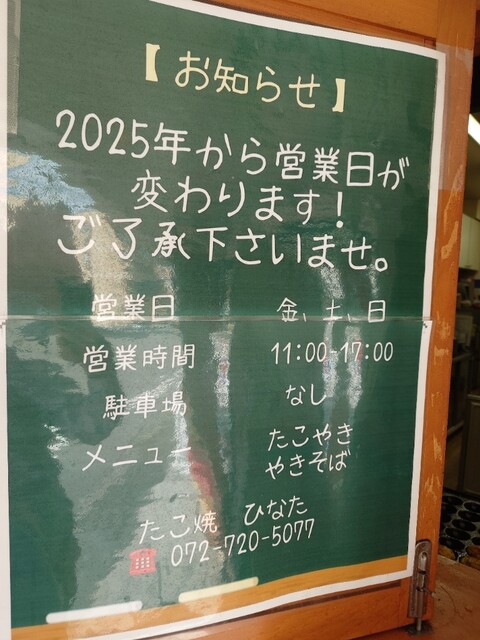 【お知らせ】
2025年から営業日が
変わります！
ご了承下さいませ。
営業日 金、土、日
営業時間 11:00-17:00
駐車場 なし
メニュー たこやき
やきそば
たこ焼 ひなた
☎ 072-720-5077